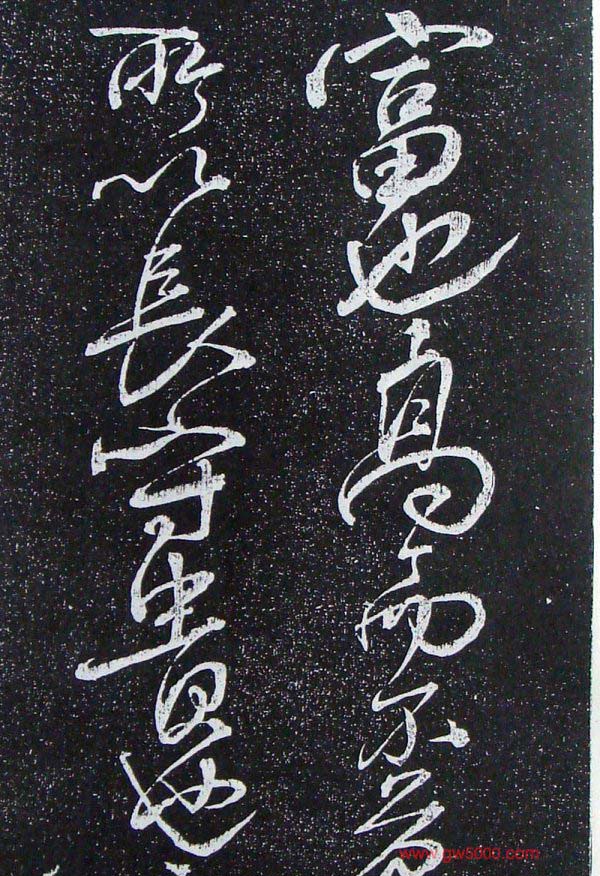 富也高而不危
所以長守貴也
www.gw5000.com